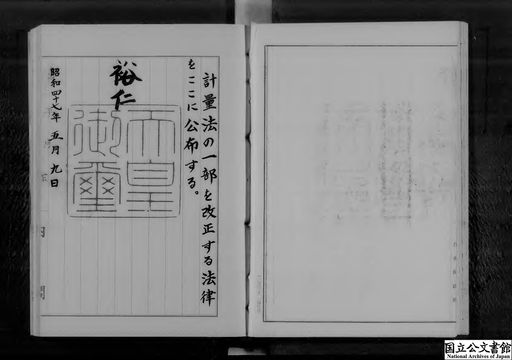 計量法の一部を改正する法律
をここに公布する。
裕仁
天皇
御璽
昭和四十七年五月九日
国立公文書館
National Archives of Japan